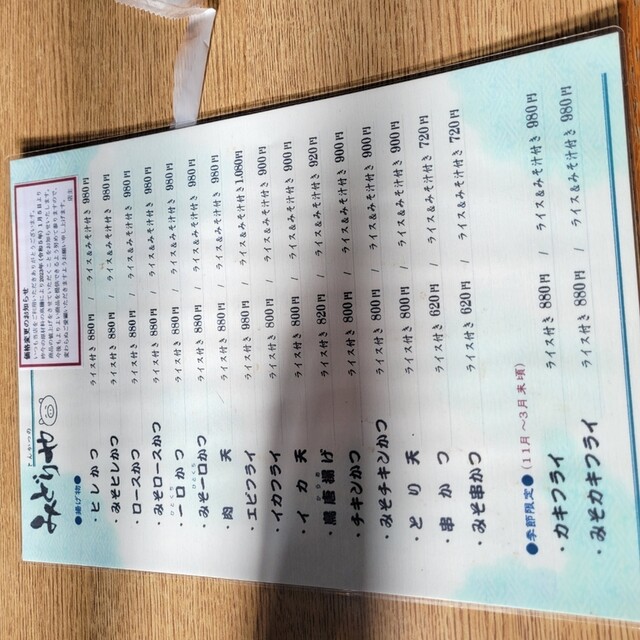 とんかつの
みどりや
価格変更のお知らせ
いつも当店をご利用いただきありがとうございます。
店主
●揚げ物●
・ヒレかつ ライス付き 880円 / ライス&みそ汁付き 980円
・みそヒレかつ ライス付き 880円 / ライス&みそ汁付き 980円
・ロースかつ ライス付き 880円 / ライス&みそ汁付き 980円
・みそロースかつ ライス付き 880円 / ライス&みそ汁付き 980円
・一口かつ ライス付き 880円 / ライス&みそ汁付き 980円
ひとくち
・みそ一口かつ ライス付き 880円 / ライス&みそ汁付き 980円
ひとくち
・肉天 ライス付き 880円 / ライス&みそ汁付き 980円
・エビフライ ライス付き 980円 / ライス&みそ汁付き 1,080円
・イカフライ ライス付き 800円 / ライス&みそ汁付き 900円
・イカ天 ライス付き 800円 / ライス&みそ汁付き 900円
・鶏唐揚げ ライス付き 820円 / ライス&みそ汁付き 920円
・チキンかつ ライス付き 800円 / ライス&みそ汁付き 900円
・みそチキンかつ ライス付き 800円 / ライス&みそ汁付き 900円
・とり天 ライス付き 800円 / ライス&みそ汁付き 900円
・串かつ ライス付き 620円 / ライス&みそ汁付き 720円
・みそ串かつ ライス付き 620円 / ライス&みそ汁付き 720円
●季節限定●(11月〜3月末頃)
・カキフライ ライス付き 880円 / ライス&みそ汁付き 980円
・みそカキフライ ライス付き 880円 / ライス&みそ汁付き 980円